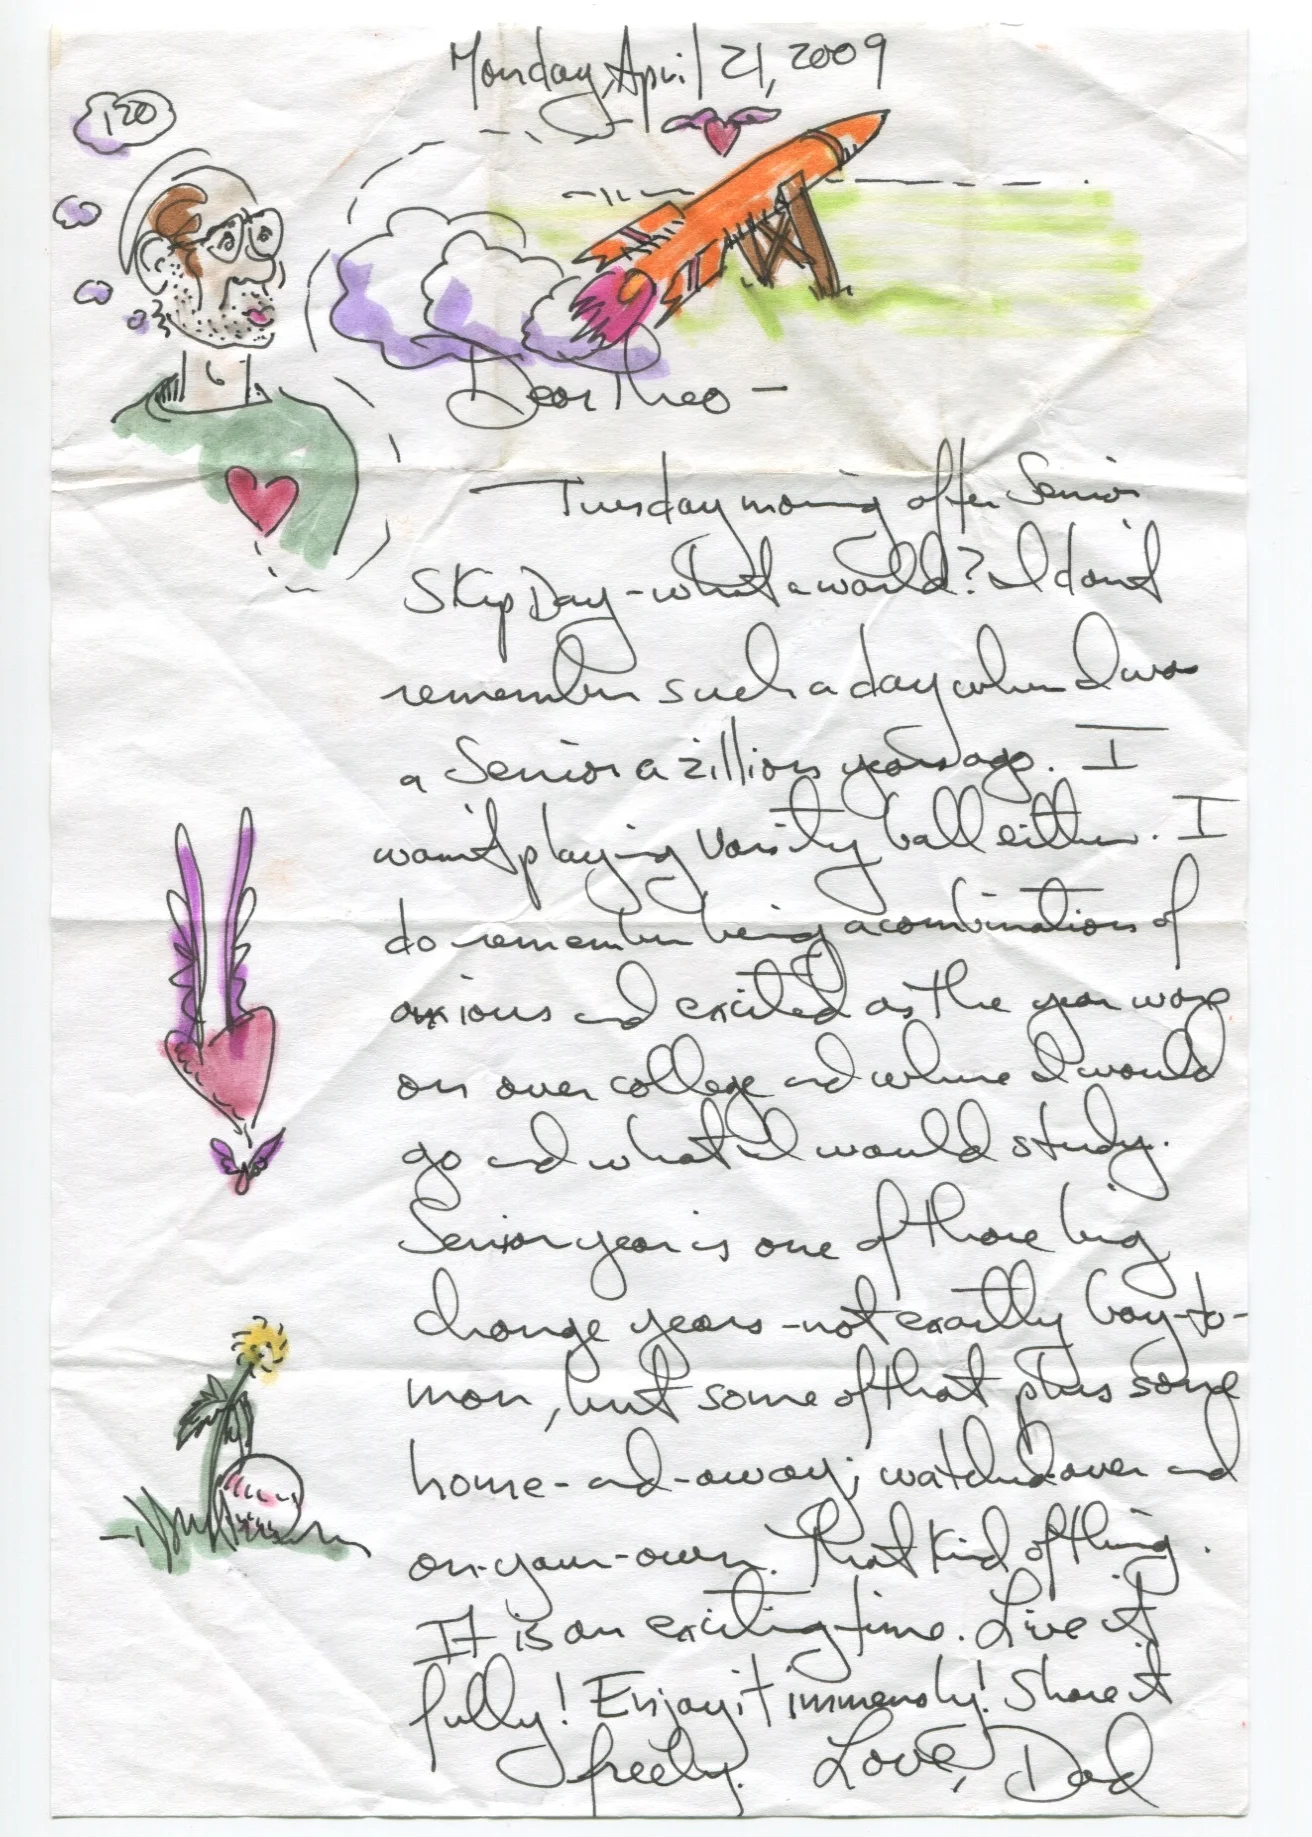 Monday, April 21, 2009
120
Dear Theo —
Tuesday morning after Senior
Skip Day - what a world? I don't
remember such a day when I was
a Senior a zillion years ago. I
wasn't playing Varsity ball either. I
do remember being a combination of
anxious and excited as the year wore
on over college and where I would
go and what I would study.
Senior year is one of those big
change years - not exactly boy-to-
man, but some of that plus some
home-and-away; watched over and
on-your-own. That kind of thing.
It is an exciting time. Live it
fully! Enjoy it immensely! Share it
freely. Love, Dad